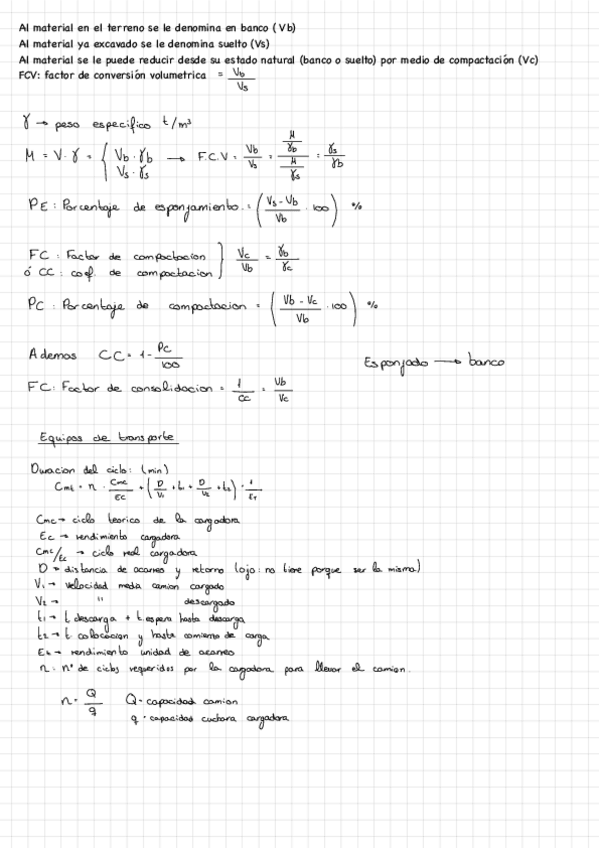 Al material en el terreno se le denomina en banco (Vb)
Al material ya excavado se le denomina suelto (Vs)
Al material se le puede reducir desde su estado natural (banco o suelto) por medio de compactación (Vc)
FCV: factor de conversión volumetrica = Vb/Vs
γ → peso especifico t/m³
M = V·γ = { Vb·γb ; Vs·γs → F.C.V = Vb/Vs = (M/γb)/(M/γs) = γs/γb
PE: Porcentaje de esponjamiento = (Vs - Vb / Vb · 100) %
FC: Factor de compactacion } Vc/Vb = γb/γc
ó CC: coef. de compactacion
PC: Porcentaje de compactacion = (Vb - Vc / Vb · 100) %
Ademas CC = 1 - PC/100
Esponjado → banco
FC: Factor de consolidacion = 1/CC = Vb/Vc
Equipos de transporte
Duracion del ciclo: (min)
Cmt = n · Cmc/Ec + (D/V₁ + t₁ + D/V₂ + t₂) · 1/Et
Cmc → ciclo teorico de la cargadora
Ec → rendimiento cargadora
Cmc/Ec → ciclo real cargadora
D → distancia de acarreo y retorno (ojo: no tiene porque ser la misma)
V₁ → velocidad media camion cargado
V₂ → " descargado
t₁ → t descarga + t. espera hasta descarga
t₂ → t colocacion y hasta comienzo de carga
Et → rendimiento unidad de acarreo
n: nº de ciclos requeridos por la cargadora para llenar el camion.
n = Q/q Q = capacidad camion
q = capacidad cuchara cargadora